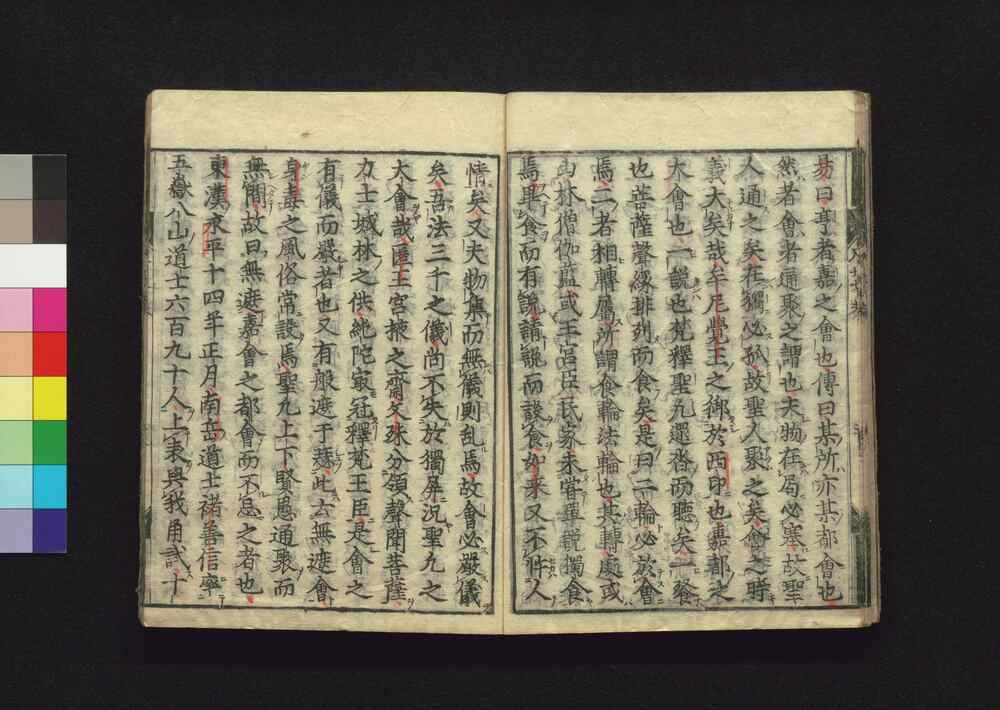 易曰亨者嘉之會也傳曰某所亦某都會也
然者會者通聚之謂也夫物在局必塞故聖
人通之矣在獨必孤故聖人聚之矣會之時
義大矣哉牟尼覺王之御於西印也嘉都之
大會也一說也梵釋聖凡還咨而聽矣一餐
也菩薩聲緣排列而食矣是曰二輪必於會
焉二者相轉屬所謂食輪法輪也其轉處或
山林僧伽藍或王宮臣民家未嘗單說獨食
焉畢食而有說請說而設食如來又不件人
情矣又夫物集而無儀則乱焉故會必嚴儀
矣吾法三千之儀尚不失於獨屏況聖凡之
大會哉匿王宮掖之齋文殊分領聲聞菩薩
力士城林之供純陀最冠釋梵王臣是會之
有儀而嚴者也又有般遮于瑟此去無遮會
身毒之風俗常設焉聖凡上下賢愚通聚而
無間故曰無遮嘉會之都會而不怠之者也
東漢永平十四年正月南岳道士褚善信率
五嶽八山道士六百九十人上表與我角試十